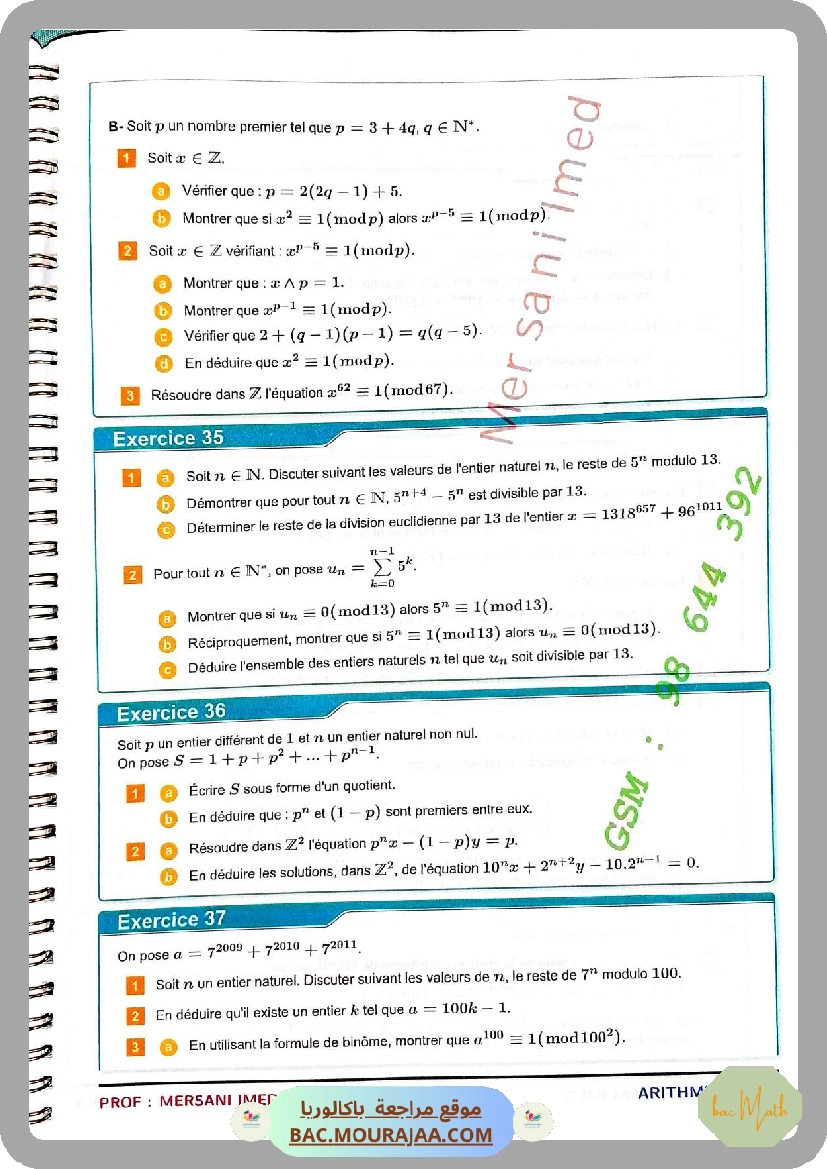 B- Soit p un nombre premier tel que p = 3 + 4q, q ∈ ℕ*.
1 Soit x ∈ ℤ.
a Vérifier que : p = 2(2q − 1) + 5.
b Montrer que si x² ≡ 1(mod p) alors x^{p−5} ≡ 1(mod p).
2 Soit x ∈ ℤ vérifiant : x^{p−5} ≡ 1(mod p).
a Montrer que : x ∧ p = 1.
b Montrer que x^{p−1} ≡ 1(mod p).
c Vérifier que 2 + (q − 1)(p − 1) = q(q − 5).
d En déduire que x² ≡ 1(mod p).
3 Résoudre dans ℤ l'équation x^{62} ≡ 1(mod 67).
Mersani Imed
Exercice 35
1 a Soit n ∈ ℕ. Discuter suivant les valeurs de l'entier naturel n, le reste de 5^n modulo 13.
b Démontrer que pour tout n ∈ ℕ, 5^{n+4} − 5^n est divisible par 13.
c Déterminer le reste de la division euclidienne par 13 de l'entier x = 1318^{657} + 96^{1011}.
2 Pour tout n ∈ ℕ*, on pose u_n = \sum_{k=0}^{n−1} 5^k.
a Montrer que si u_n ≡ 0(mod 13) alors 5^n ≡ 1(mod 13).
b Réciproquement, montrer que si 5^n ≡ 1(mod 13) alors u_n ≡ 0(mod 13).
c Déduire l'ensemble des entiers naturels n tel que u_n soit divisible par 13.
GSM : 98 644 392
Exercice 36
Soit p un entier différent de 1 et n un entier naturel non nul.
On pose S = 1 + p + p² + ... + p^{n−1}.
1 a Écrire S sous forme d'un quotient.
b En déduire que : p^n et (1 − p) sont premiers entre eux.
2 a Résoudre dans ℤ² l'équation p^n x − (1 − p)y = p.
b En déduire les solutions, dans ℤ², de l'équation 10^n x + 2^{n+2} y − 10.2^{n−1} = 0.
Exercice 37
On pose a = 7^{2009} + 7^{2010} + 7^{2011}.
1 Soit n un entier naturel. Discuter suivant les valeurs de n, le reste de 7^n modulo 100.
2 En déduire qu'il existe un entier k tel que a = 100k − 1.
3 a En utilisant la formule de binôme, montrer que a^{100} ≡ 1(mod 100²).
PROF : MERSANI IMED
موقع مراجعة باكالوريا
BAC.MOURAJAA.COM
ARITHM
bac Math